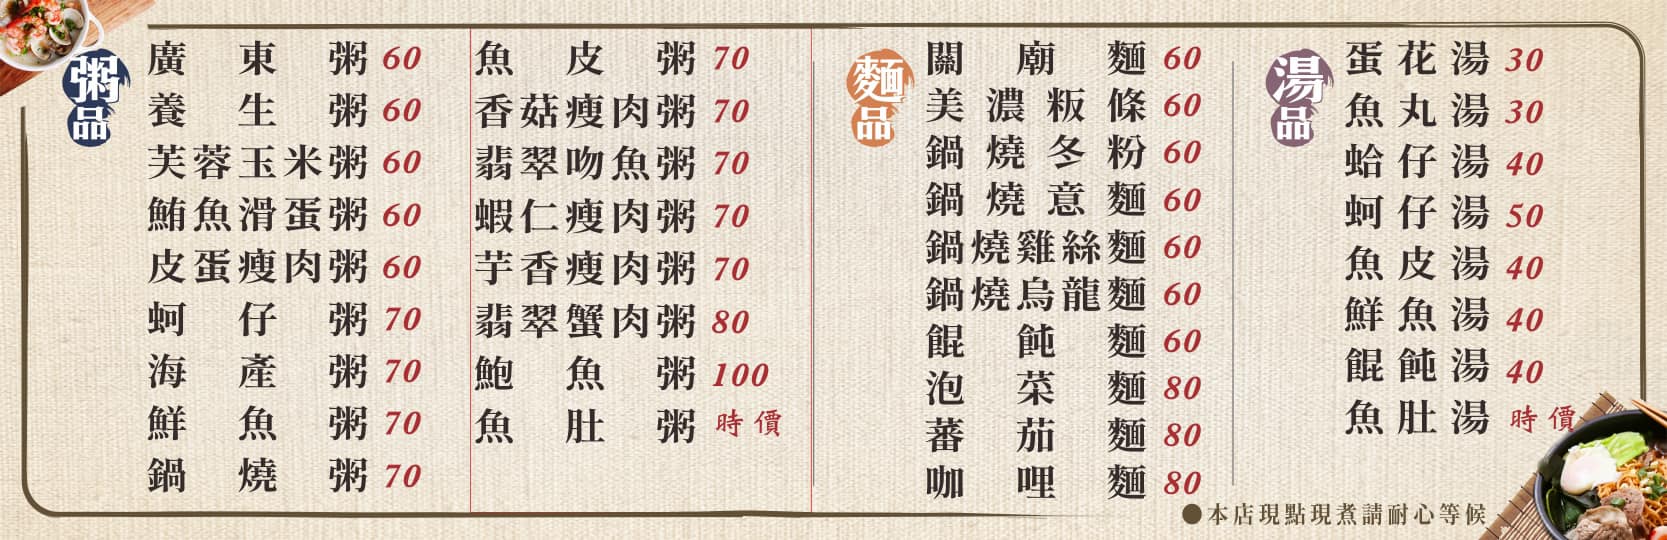 粥品
廣東粥 60
養生粥 60
芙蓉玉米粥 60
鮪魚滑蛋粥 60
皮蛋瘦肉粥 60
蚵仔粥 70
海產粥 70
鮮魚粥 70
鍋燒粥 70
魚皮粥 70
香菇瘦肉粥 70
翡翠吻魚粥 70
蝦仁瘦肉粥 70
芋香瘦肉粥 70
翡翠蟹肉粥 80
鮑魚粥 100
魚肚粥 時價
麵品
關廟麵 60
美濃粄條 60
鍋燒冬粉 60
鍋燒意麵 60
鍋燒雞絲麵 60
鍋燒烏龍麵 60
餛飩麵 60
泡菜麵 80
蕃茄麵 80
咖哩麵 80
湯品
蛋花湯 30
魚丸湯 30
蛤仔湯 40
蚵仔湯 50
魚皮湯 40
鮮魚湯 40
餛飩湯 40
魚肚湯 時價
●本店現點現煮請耐心等候